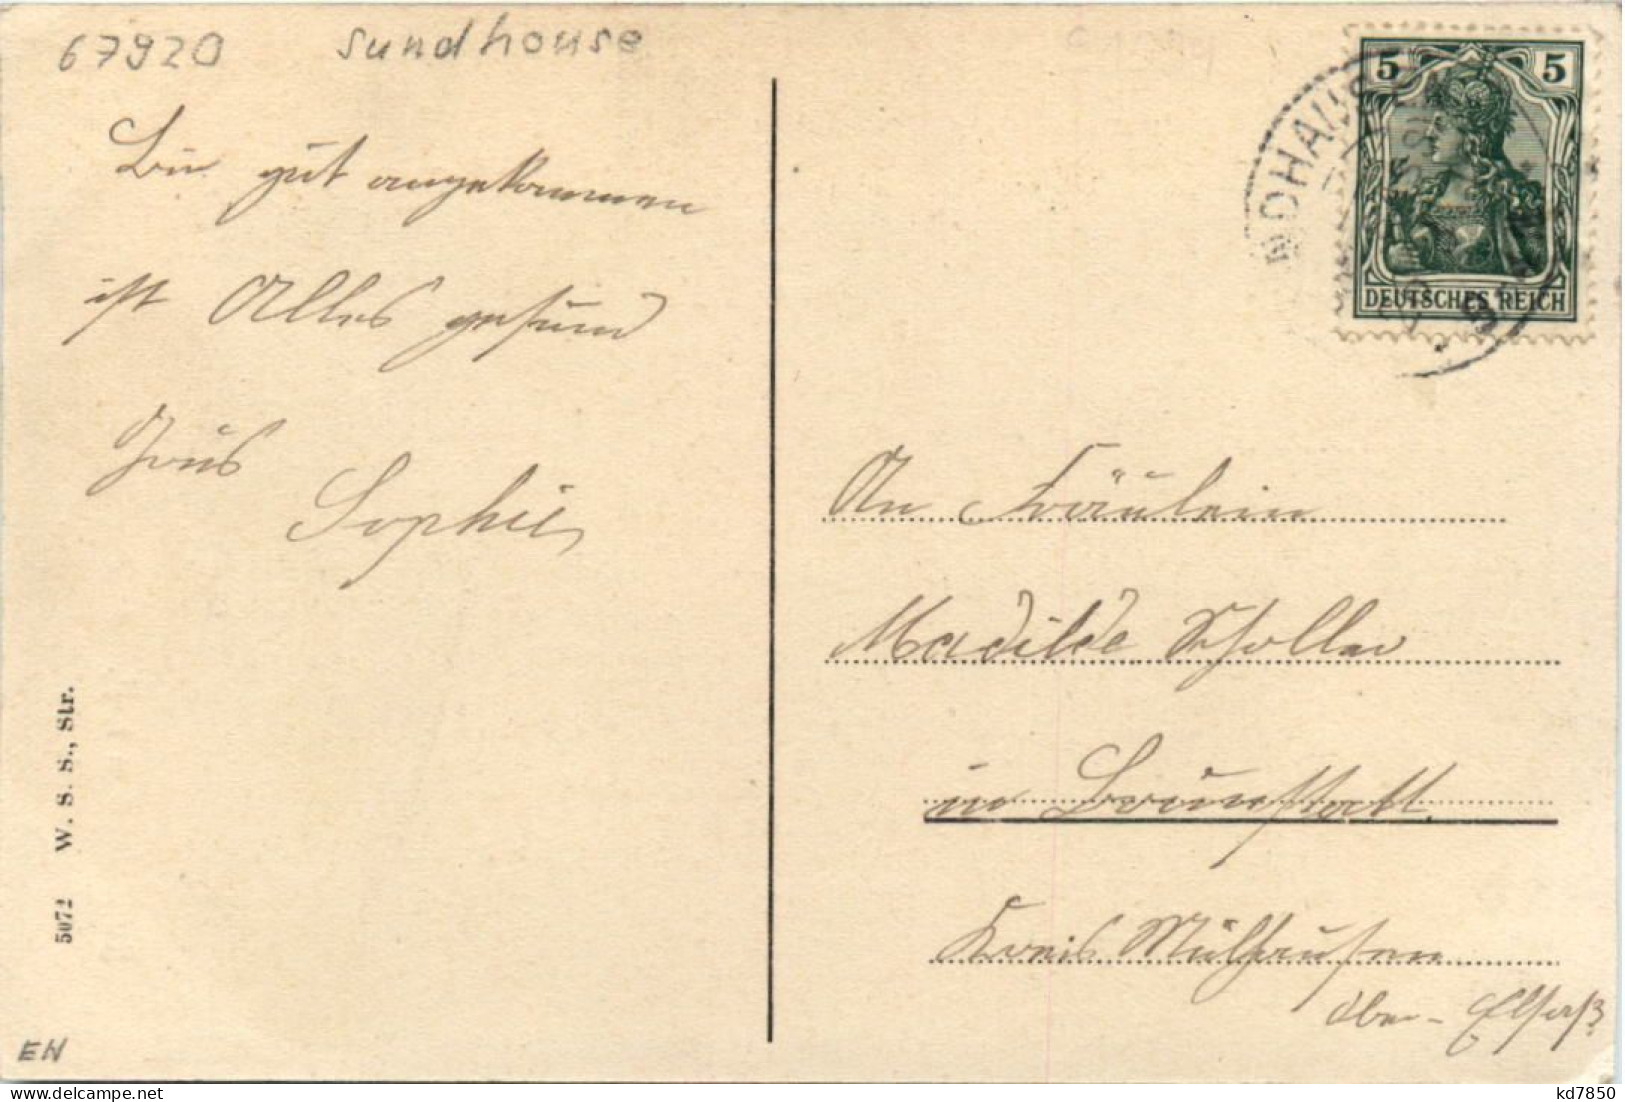 67920 Sundhouse
Bin gut angekommen
ist Alles gesund
Grus
Sophie
5 5
DEUTSCHES REICH
NDHAUS
An Fräulein
Madilde Scholler
in Brunstatt.
Kreis Mülhausen
Ober-Elsaß
5072 W. S. S., Str.
EH
kd7850